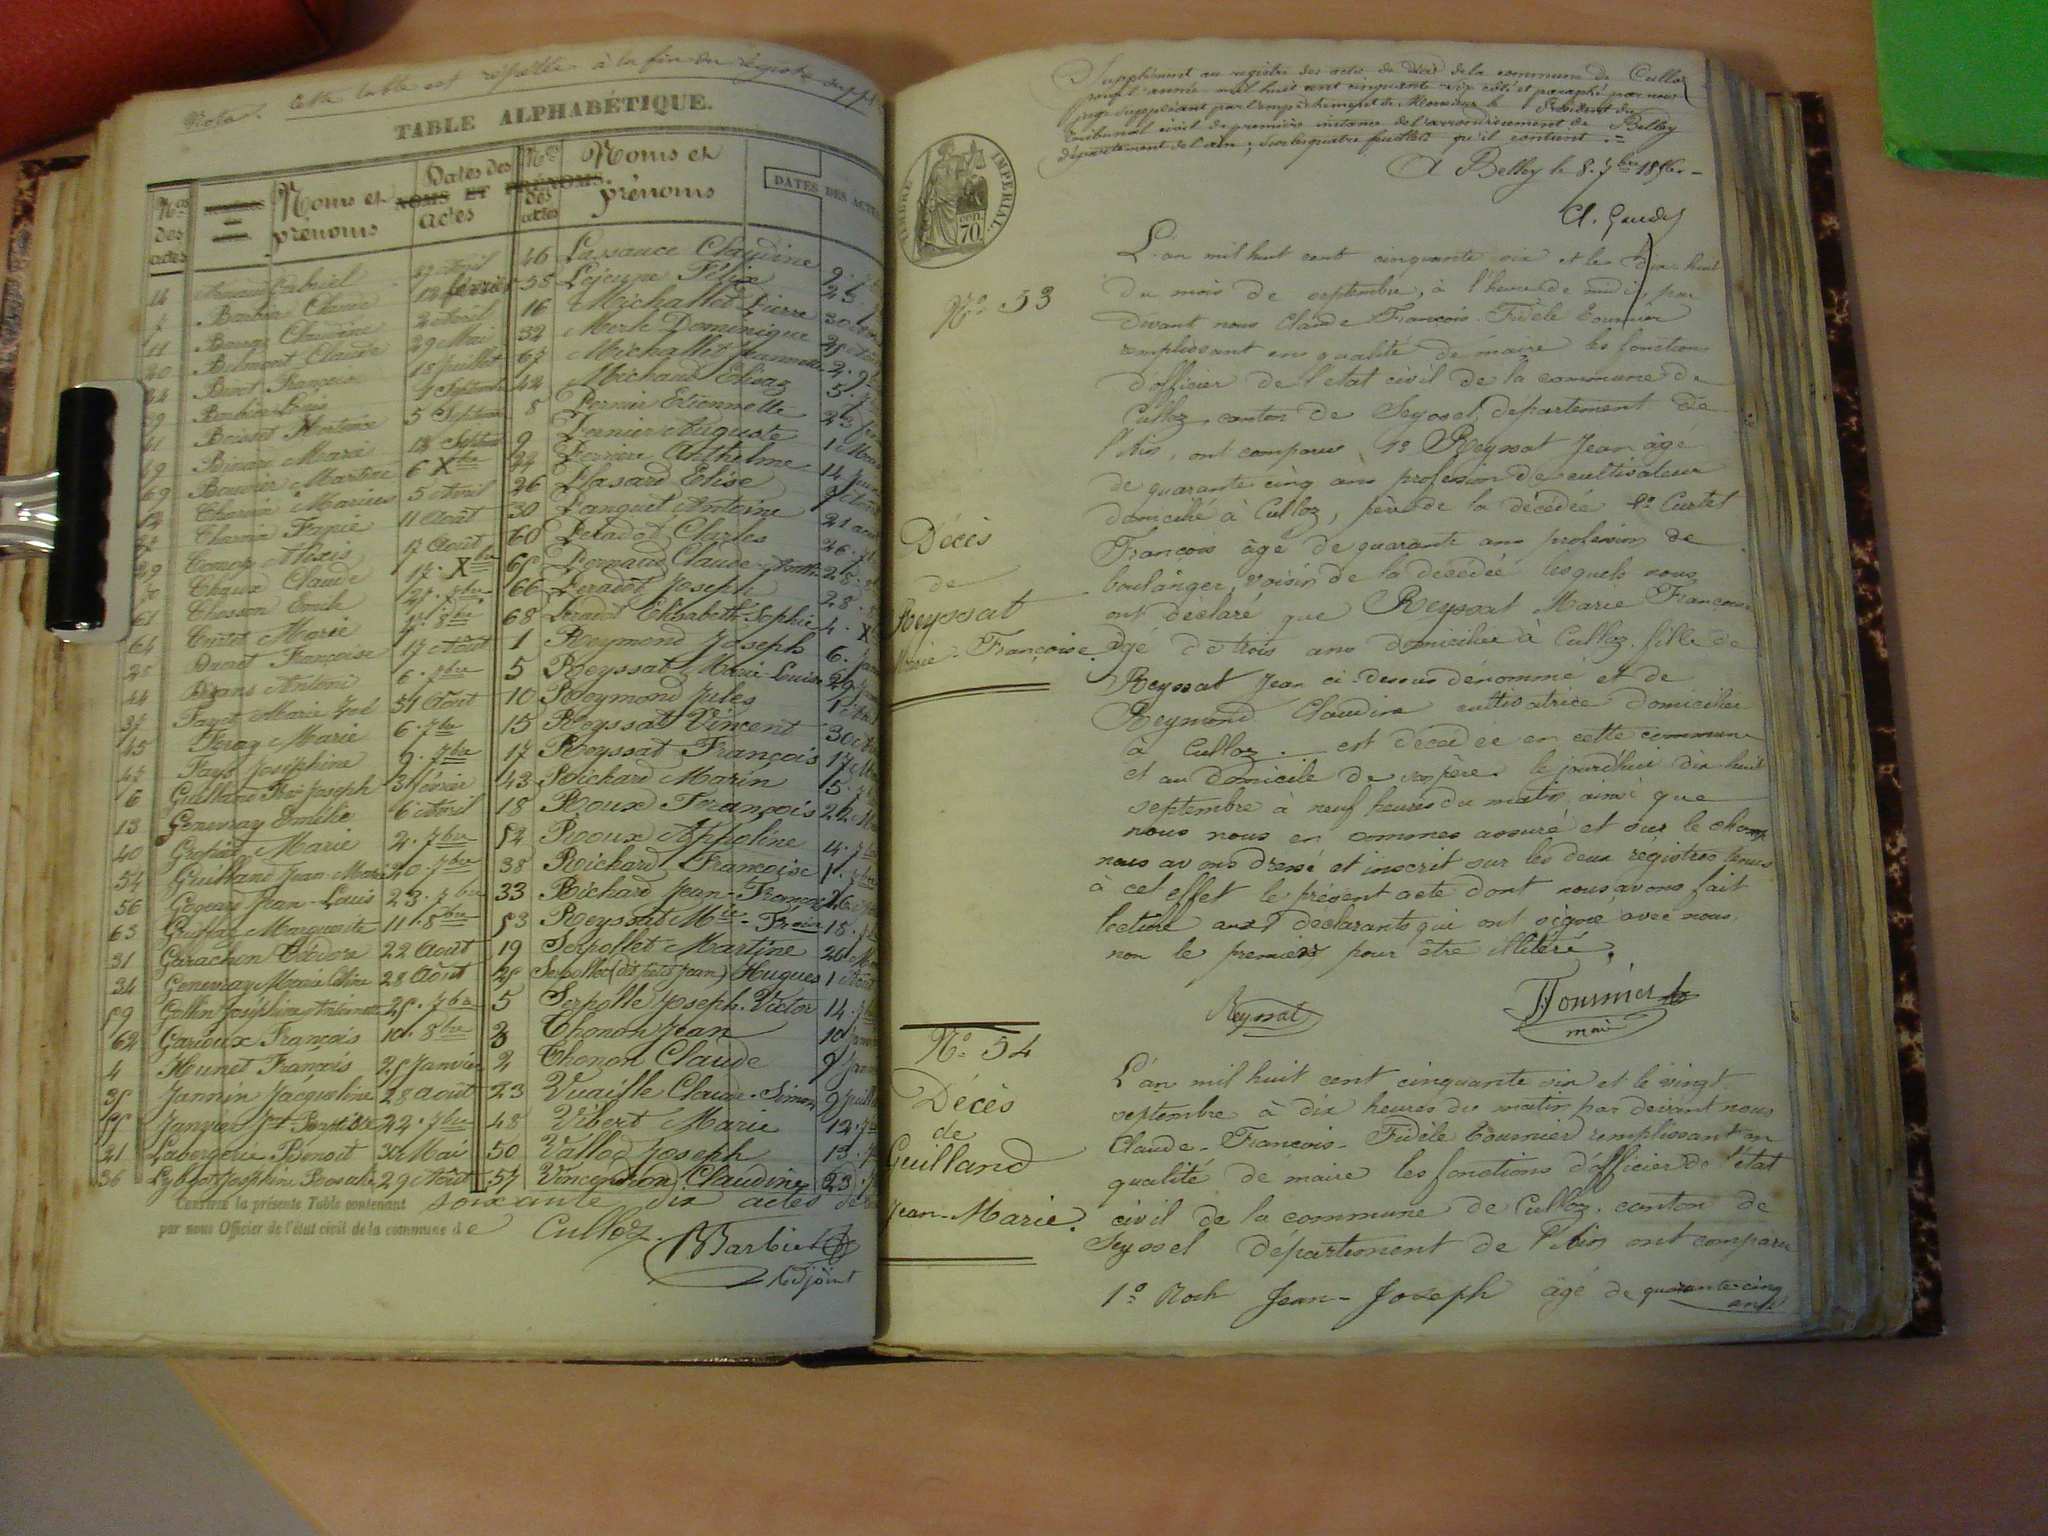 Nota. Cette table est répétée à la fin du registre suppt
TABLE ALPHABÉTIQUE.
Nos des actes
Noms et prénoms
Dates des actes
NOMS ET PRÉNOMS.
Nos des actes
Noms et prénoms
DATES DES ACTES
14 Gabriel 17 Avril
7 Barbin Claude 12 février
11 Bauge Claudine 2 Avril
20 Belmont Claude 29 Mai
24 Binot François 15 Juillet
39 Barbier Louis 1 Septembre
41 Boisset Hortense 5 Septembre
49 Binard Marie 12 Septembre
69 Bouvier Martine 6 Xbre
12 Charvin Marius 5 Avril
27 Charvin Fanie 11 Août
29 Alexis 17 Août
70 Chaux Claude 17. Xbre
61 Chosson Emile 27. 7bre
64 Curtet Marie 17. 8bre
28 Ducret Françoise 17 Août
44 Antoni 6. 7bre
37 Fayet Marie 31 Août
45 Feray Marie 6. 7bre
47 Fays Joséphine 9. 7bre
6 Guilland Joseph 3 février
13 Genevray Emélie 6 Avril
40 Marie 2. 7bre
54 Guilland Jean-Marie 20. 7bre
56 Jean-Louis 23. 7bre
63 Guiffray Marguerite 11. 8bre
31 Garachon 22 Août
34 Genevray Marie Céline 28 Août
59 Gollin Joséphine Antoinette 25. 7bre
62 Garioux François 10. 8bre
4 Hunet François 25 Janvier
35 Jannin Jacqueline 28 Août
55 Janvier 22. 7bre
21 Labergerie Benoit 30 Mai
36 Joséphine Rosalie 29 Août
46 Lassauce Claudine 9.
58 Lejeune Félix 23
16 Michallet Pierre 30
32 Mork Dominique 25
67 Michallet Jeannette 2. 9bre
42 Michaud Elisa 5.
8 Pernier Etiennette 23
9 Pernier Auguste 1
22 Perrier Anthelme 14
26 Plasard Elise 7
30 Panquet Antoine 21
60 Peradot Charles 26.
65 Pernaud Claude-Anth. 28.
66 Peradot Joseph 28.
68 Peradot Elisabeth Sophie 4. X
1 Reymond Joseph 6.
5 Reyssat Marie-Louise 29
10 Reymond Jules 1
15 Reyssat Vincent 30
17 Reyssat François 17
43 Richard Marin 5.
18 Roux François 22
52 Roux Appoline 14. 7bre
38 Richard Françoise 1. 7bre
33 Richard Jean-François 26
53 Reyssat Mie-Frsoise 18. 7
19 Serpollet Martine 20
25 Serpollet (dit petit Jean) Hugues 1 Août
5 Serpolle Joseph-Victor 14. 7bre
3 Thonon Jean 10
2 Thonon Claude 9
23 Vuaille Claude-Simon 9 Juillet
48 Vibert Marie 12. 7bre
50 Vallod Joseph 13. 7
57 Vincendon Claudine 23.
Certifié la présente Table contenant soixante dix actes de
par nous Officier de l'état civil de la commune de Culloz.
Barbier
Adjoint
Supplément au registre des actes de décès de la commune de Culloz
pour l'année mil huit cent cinquante six côté et paraphé par nous
juge suppléant par l'empêchement de Monsieur le Président du
tribunal civil de première instance de l'arrondissement de Belley
département de l'ain, sur les quatre feuillets qu'il contient.
A Belley le 8. 7bre 1856.
TIMBRE IMPERIAL.
70 cen.
No. 53
Décès
de
Reyssat
Marie-Françoise.
L'an mil huit cent cinquante six et le dix huit
du mois de septembre, à l'heure de midi, par
devant nous Claude François-Fidèle Tournier
remplissant en qualité de maire les fonctions
d'officier de l'état civil de la commune de
Culloz, canton de Seyssel, département de
l'Ain, ont comparus 1o Reyssat Jean âgé
de quarante cinq ans profession de cultivateur
domicilié à Culloz, père de la décédée 2o Curtet
François âgé de quarante ans profession de
boulanger, voisin de la décédée lesquels nous
ont déclaré que Reyssat Marie Françoise
âgé de trois ans domiciliée à Culloz fille de
Reyssat Jean ci-dessus dénommé et de
Reymond Claudine cultivatrice domiciliée
à Culloz. est décédée en cette commune
et au domicile de son père le jourd'hui dix-huit
septembre à neuf heures du matin ainsi que
nous nous en sommes assuré et sur le champ
nous avons dressé et inscrit sur les deux régistres tenus
à cet effet le présent acte dont nous avons fait
lecture aux déclarants qui ont signé avec nous
non le premier pour être illitéré.
Reyssat
Tournier
maire
No. 54
Décès
de
Guilland
Jean-Marie.
L'an mil huit cent cinquante six et le vingt
septembre à dix heures du matin par devant nous
Claude-François-Fidèle Tournier remplissant en
qualité de maire les fonctions d'officier de l'état
civil de la commune de Culloz, canton de
Seyssel département de l'Ain ont comparu
1o Roch Jean-Joseph âgé de quarante-cinq
ans